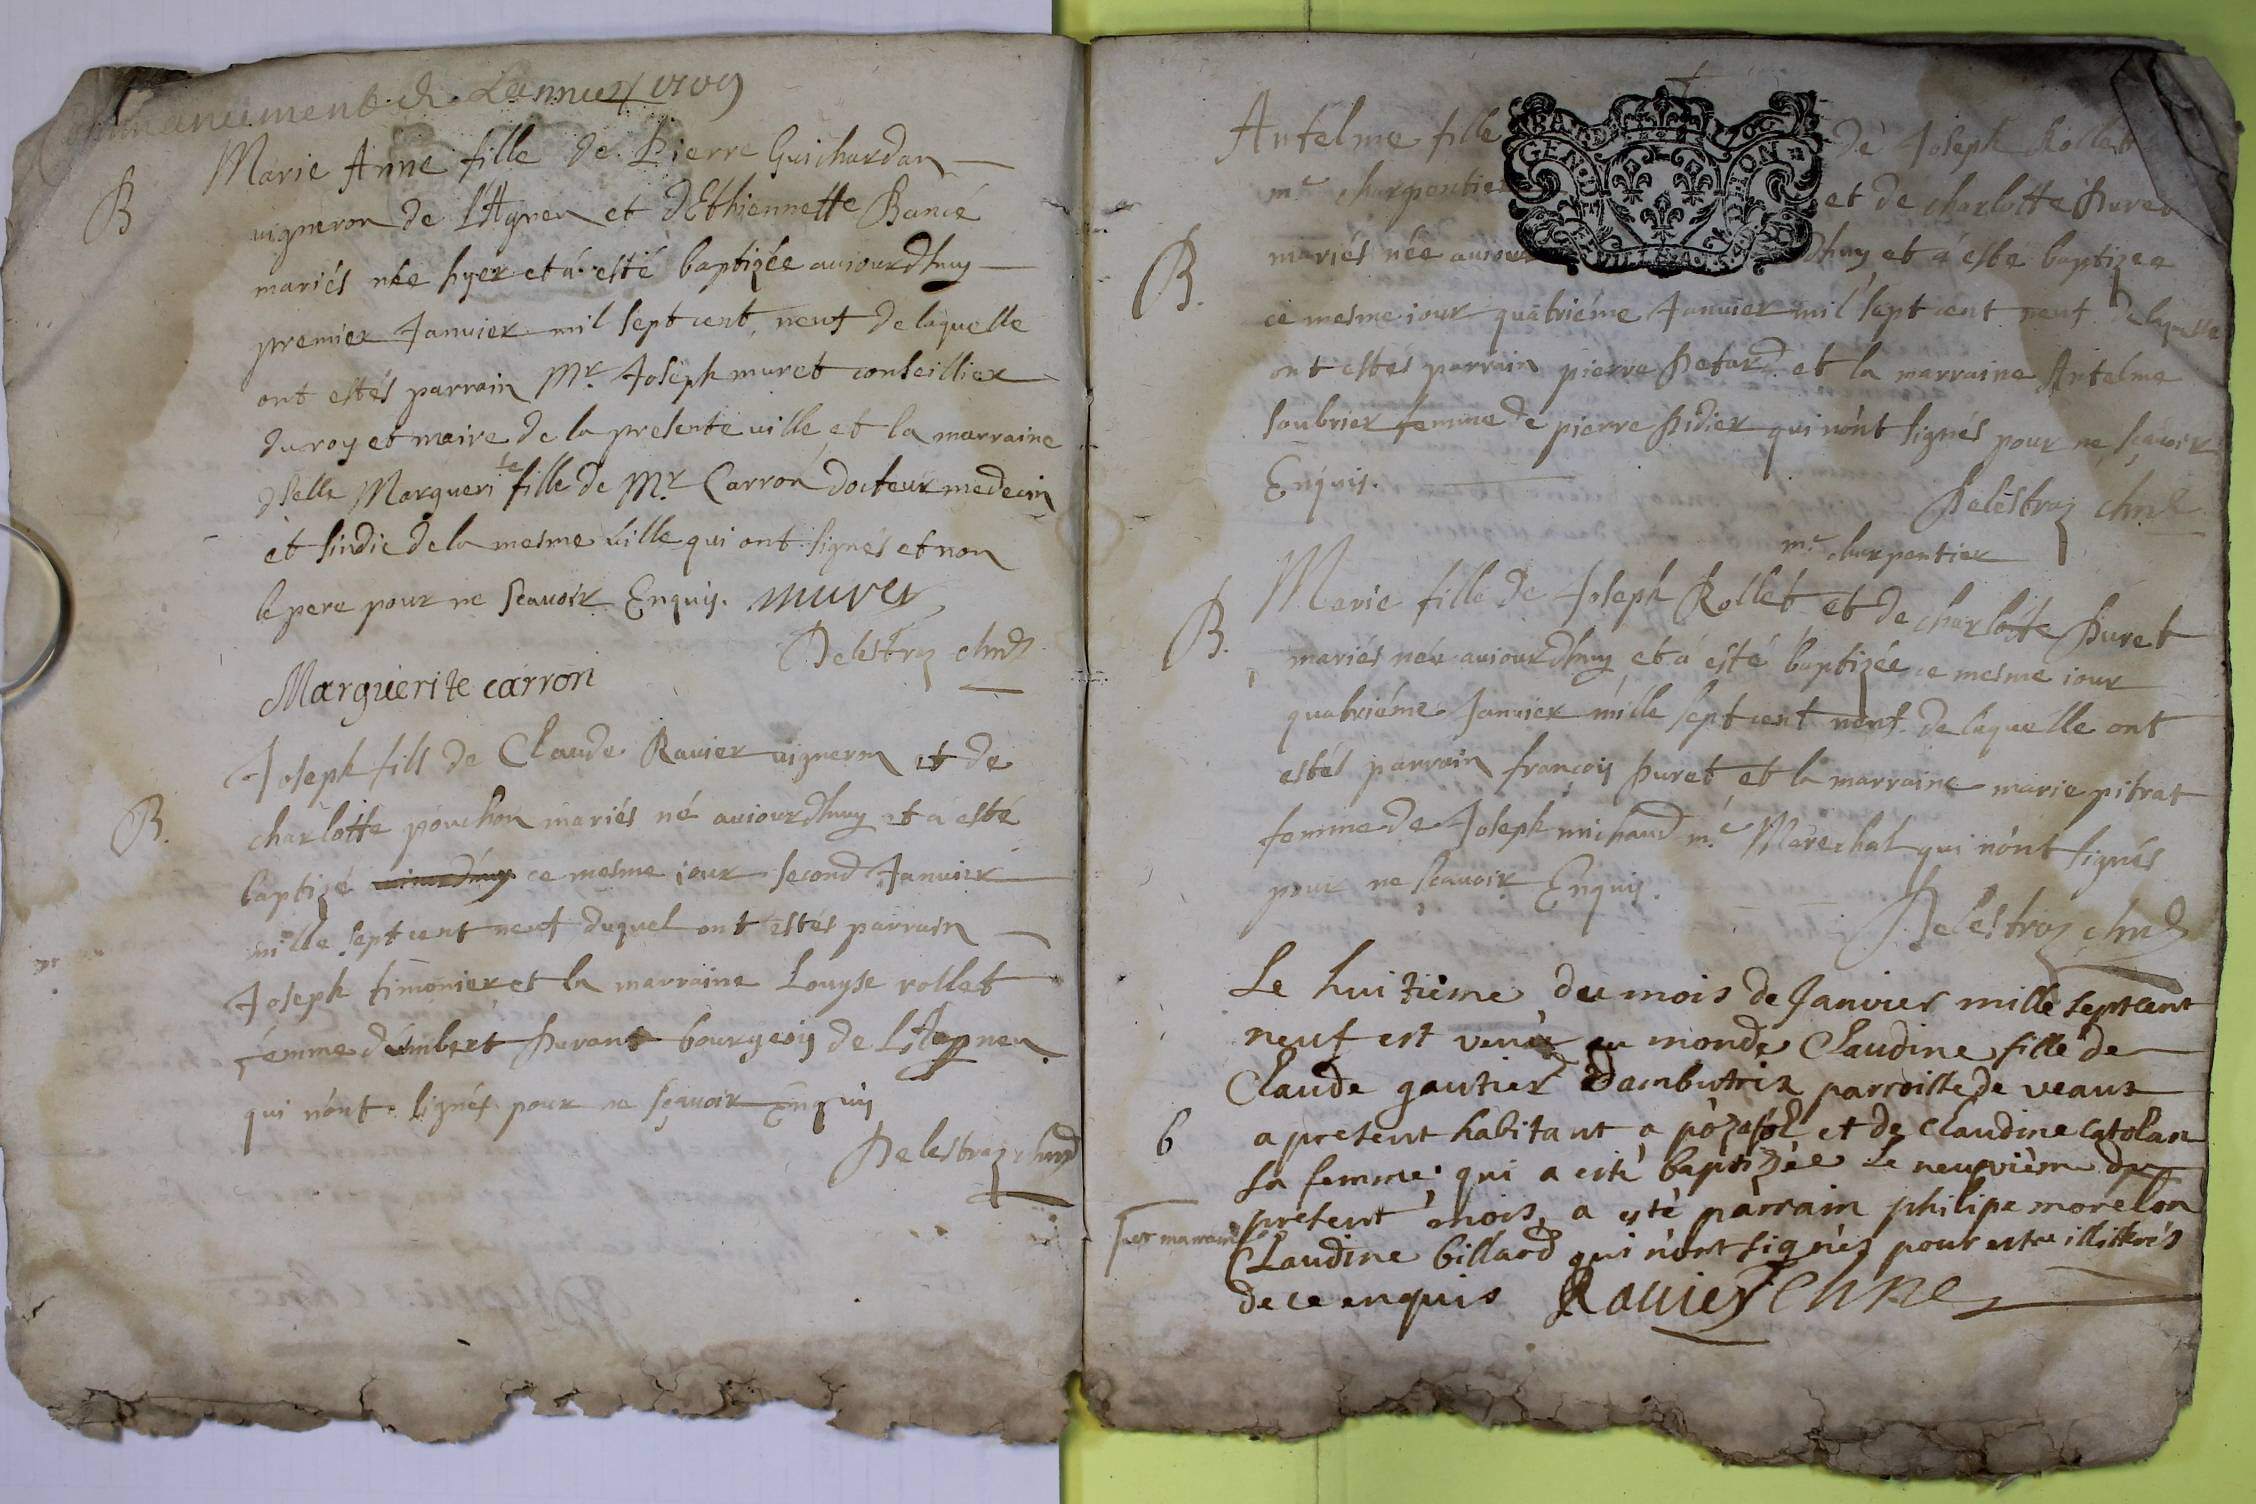 Commancement de Lannee 1709
B
Marie Anne fille de Pierre Guichardan
vigneron de l'Agneu et d'Ethiennette Bancé
mariés née hyer et a esté baptizée auiourdhuy
premier Januier mil sept cent neuf de laquelle
ont estés parrain Mr. Joseph muret conseillier
du roy et maire de la presente uille et la marraine
dlle Margueri te fille de Mr. Carron docteur medecin
et sindic de la mesme uille qui ont signés et non
le pere pour ne scauoir Enquis. muret
Delestraz
Marguerite carron
B.
Joseph fils de Claude Rauier uigneron et de
charlotte pouchon mariés né auiourdhuy et a esté
baptizé auiourdhuy ce mesme iour second Januier
mille sept cent neuf duquel ont estés parrain
Joseph simonier et la marraine Louyse rollet
femme d'umbert Durant bourgeois de L'Agneu
qui n'ont signés pour ne sçauoir Enquis
Delestraz
Antelme fille de Joseph Rollet
me charpentier et de charlotte Duret
B.
mariés née auiourdhuy et a esté baptizee
ce mesme iour quatriéme Januier mil sept cent neuf de laquelle
ont estés parrain pierre Detard et la marraine Antelme
soubrier femme de pierre Didier qui n'ont signés pour ne sçauoir
Enquis.
Delestraz
me charpentier
B.
Marie fille de Joseph Rollet et de charlotte Duret
mariés née auiourdhuy et a esté baptizée ce mesme iour
quatriéme Januier mille sept cent neuf de laquelle ont
estés parrain françois Duret et la marraine marie pitrat
femme de Joseph michaud me Marechal qui n'ont signés
pour ne sçauoir Enquis.
Delestraz
Le huitieme du mois de Janvier mille sept cent
neuf est venue au monde Claudine fille de
Claude gautier dambutrix parroisse de veaux
b
a present habitant a pozafol et de claudine catolan
sa femme qui a esté baptizée le neuvième du
present mois, a esté parrain philipe morelon
et marraine Claudine billard qui n'ont signés pour estre illitterés
de ce enquis Rauier